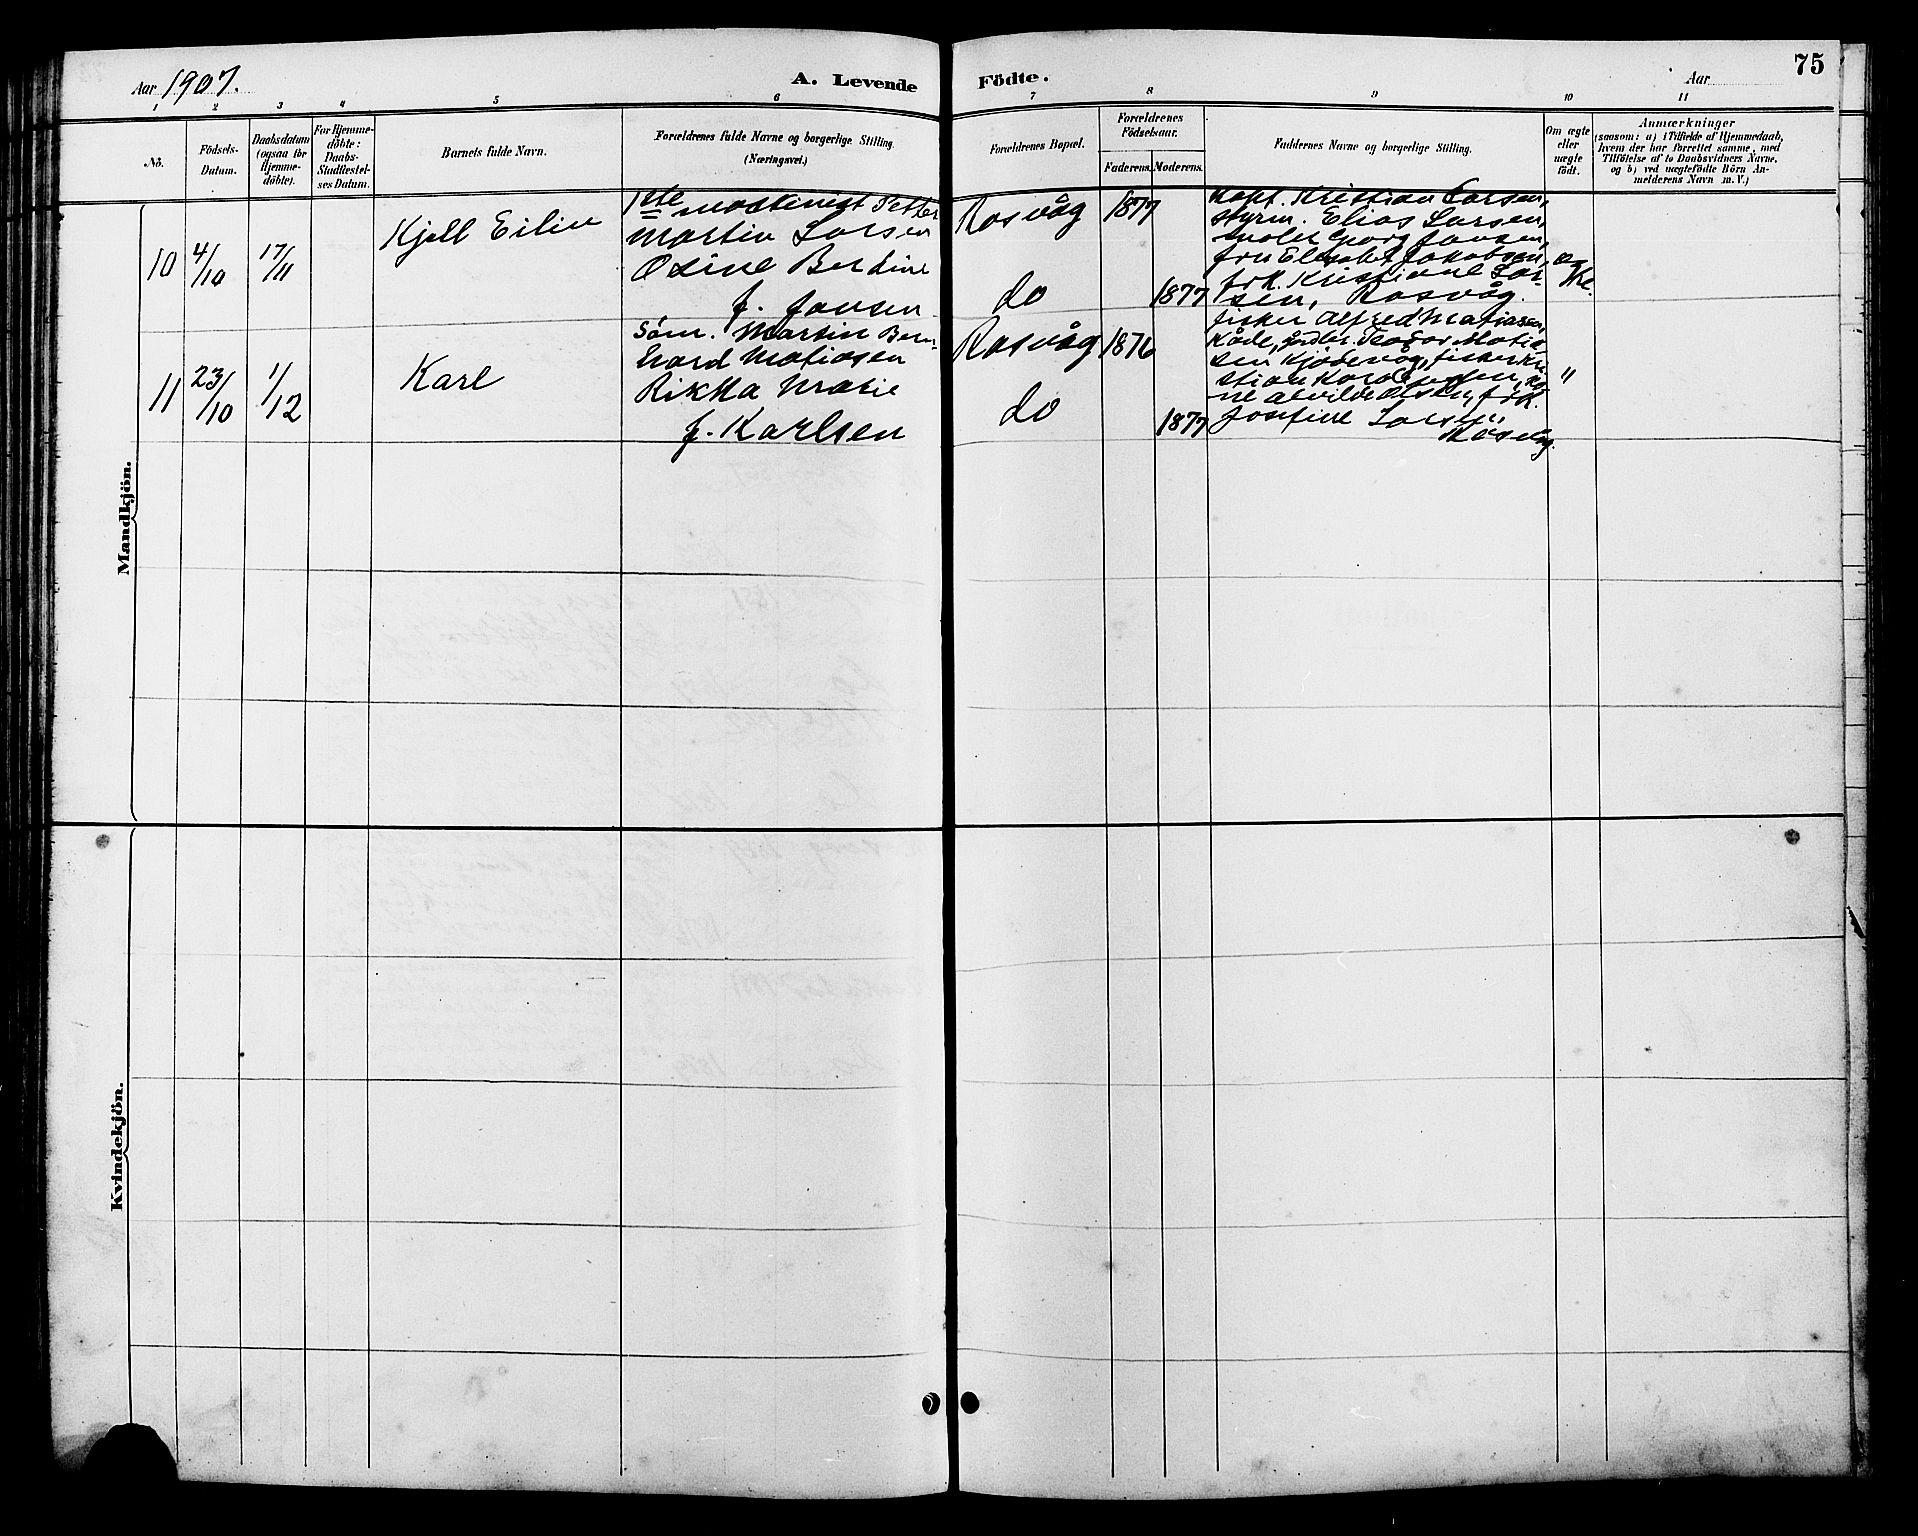 Aar 1907.
A. Levende Födte.
Aar
75
1 2 3 4 5 6 7 8 9 10 11
No.
Födsels-
Datum.
Daabsdatum
(ogsaa for
Hjemme-
döbte).
For Hjemme-
döbte:
Daabs-
Stadfæstel-
ses Datum.
Barnets fulde Navn.
Forældrenes fulde Navne og borgerlige Stilling.
(Næringsvei.)
Forældrenes Bopæl.
Forældrenes
Födselsaar.
Faderens. Moderens.
Faddernes Navne og borgerlige Stilling.
Om ægte
eller
uægte
födt.
Anmærkninger
(saasom: a) i Tilfælde af Hjemmedaab,
hvem der har forrettet samme, med
Tilföielse af to Daabsvidners Navne,
og b) ved uægtefödte Börn An-
melderens Navn m. V.)
Mandkjön.
10
4/10
17/11
Kjell Eiliv
1ste maskinist Petter
Martin Larsen
Osine Berdine
f. Jansen
Rosvåg
do
1877
1877
Kapt. Kristian Larsen,
styrm. Elias Larsen,
Georg Jansen,
fru Jakobsen,
frk. Kristiane Lar-
sen, Rosvåg.
ægte.
11
23/10
1/12
Karl
Søm. Martin Bern-
hard Matiasen
Rikka Marie
f. Karlsen
Rosvåg
do
1876
1877
fisker Alfred Matiasen,
Matia-
sen Kjødevåg, fisker Kri-
stian
frk.
Josefine Larsen
"
Kvindekjön.